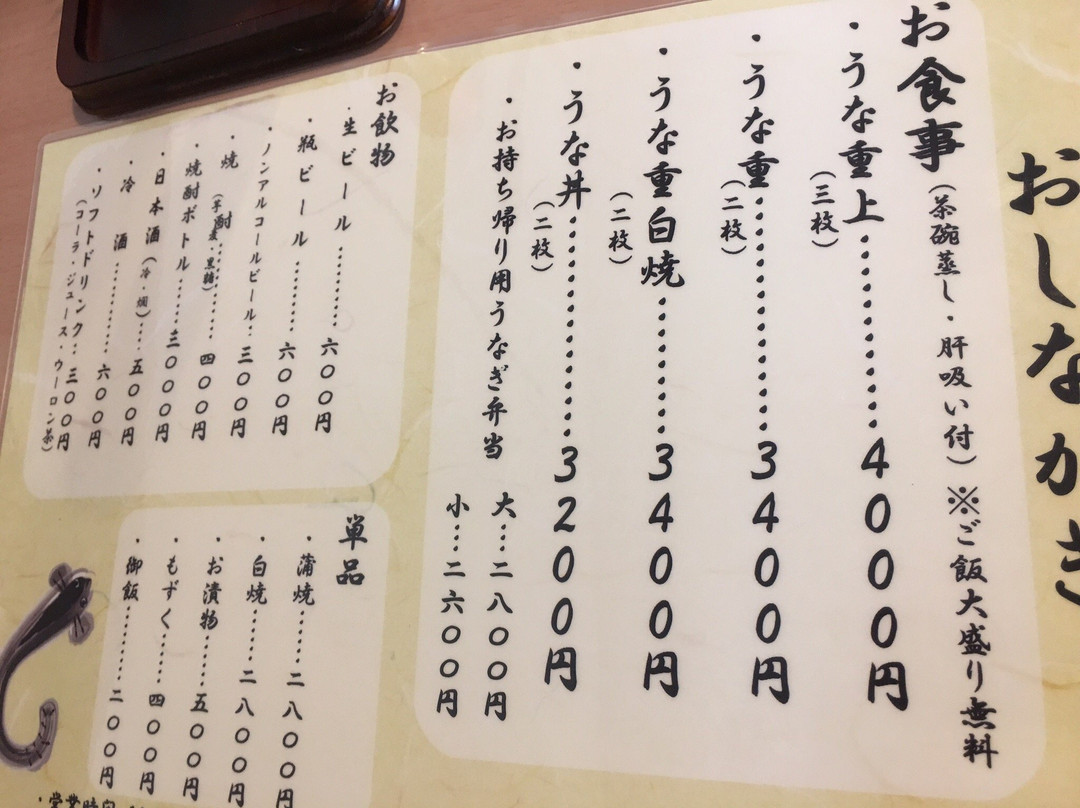 おしながき
お食事(茶碗蒸し・肝吸い付)※ご飯大盛り無料
・うな重上(三枚)…………4000円
・うな重(二枚)…………3400円
・うな重白焼(二枚)…………3400円
・うな丼(二枚)…………3200円
・お持ち帰り用うなぎ弁当 大…二八〇〇円
小…二六〇〇円
お飲物
・生ビール…………六〇〇円
・瓶ビール…………六〇〇円
・ノンアルコールビール…三〇〇円
・焼酎(芋・麦・黒糖)…………四〇〇円
・焼酎ボトル…………三〇〇〇円
・日本酒(冷・燗)…五〇〇円
・冷酒…………六〇〇円
・ソフトドリンク…三〇〇円
(コーラ・ジュース ウーロン茶)
単品
・蒲焼…………二八〇〇円
・白焼…………二八〇〇円
・お漬物…………五〇〇円
・もずく…………四〇〇円
・御飯…………二〇〇円
・営業時間